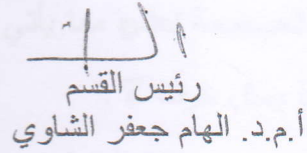 رئيس القسم
أ.م.د. الهام جعفر الشاوي